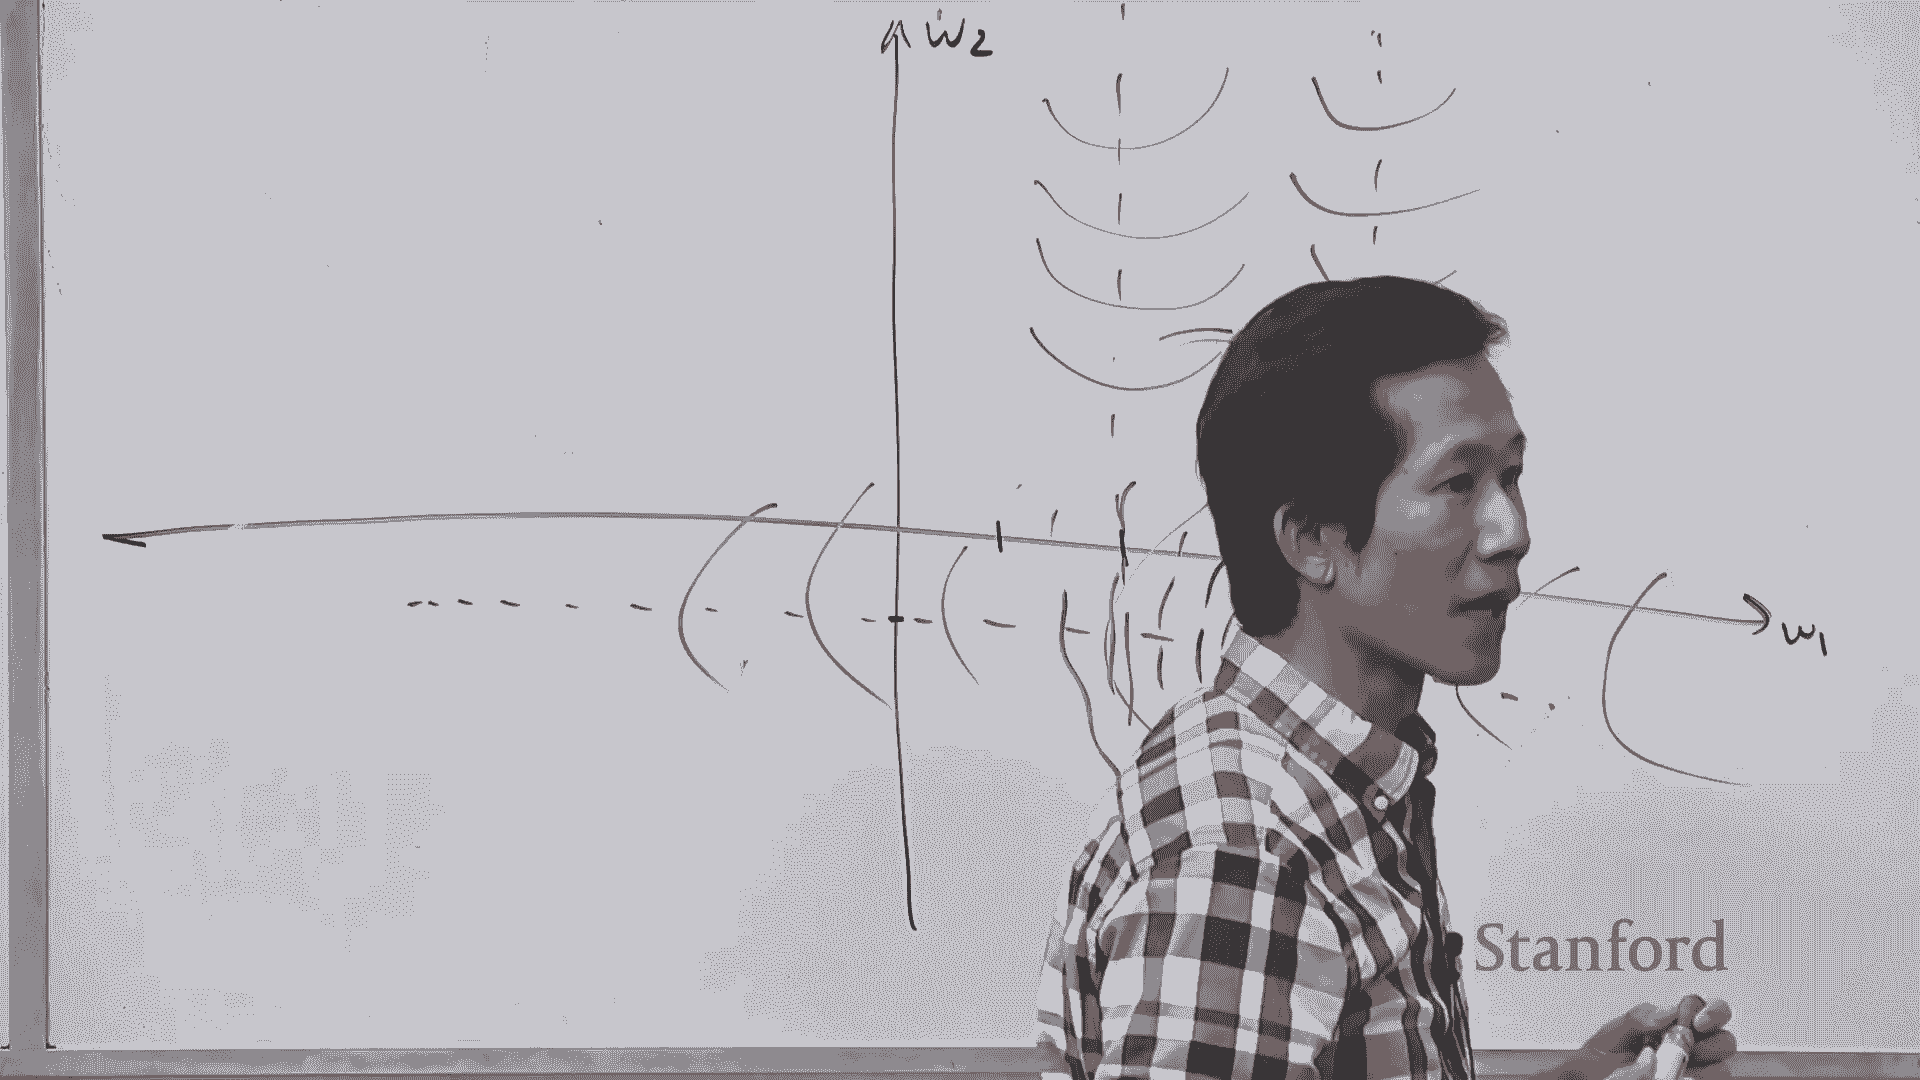 w2
w1
Stanford